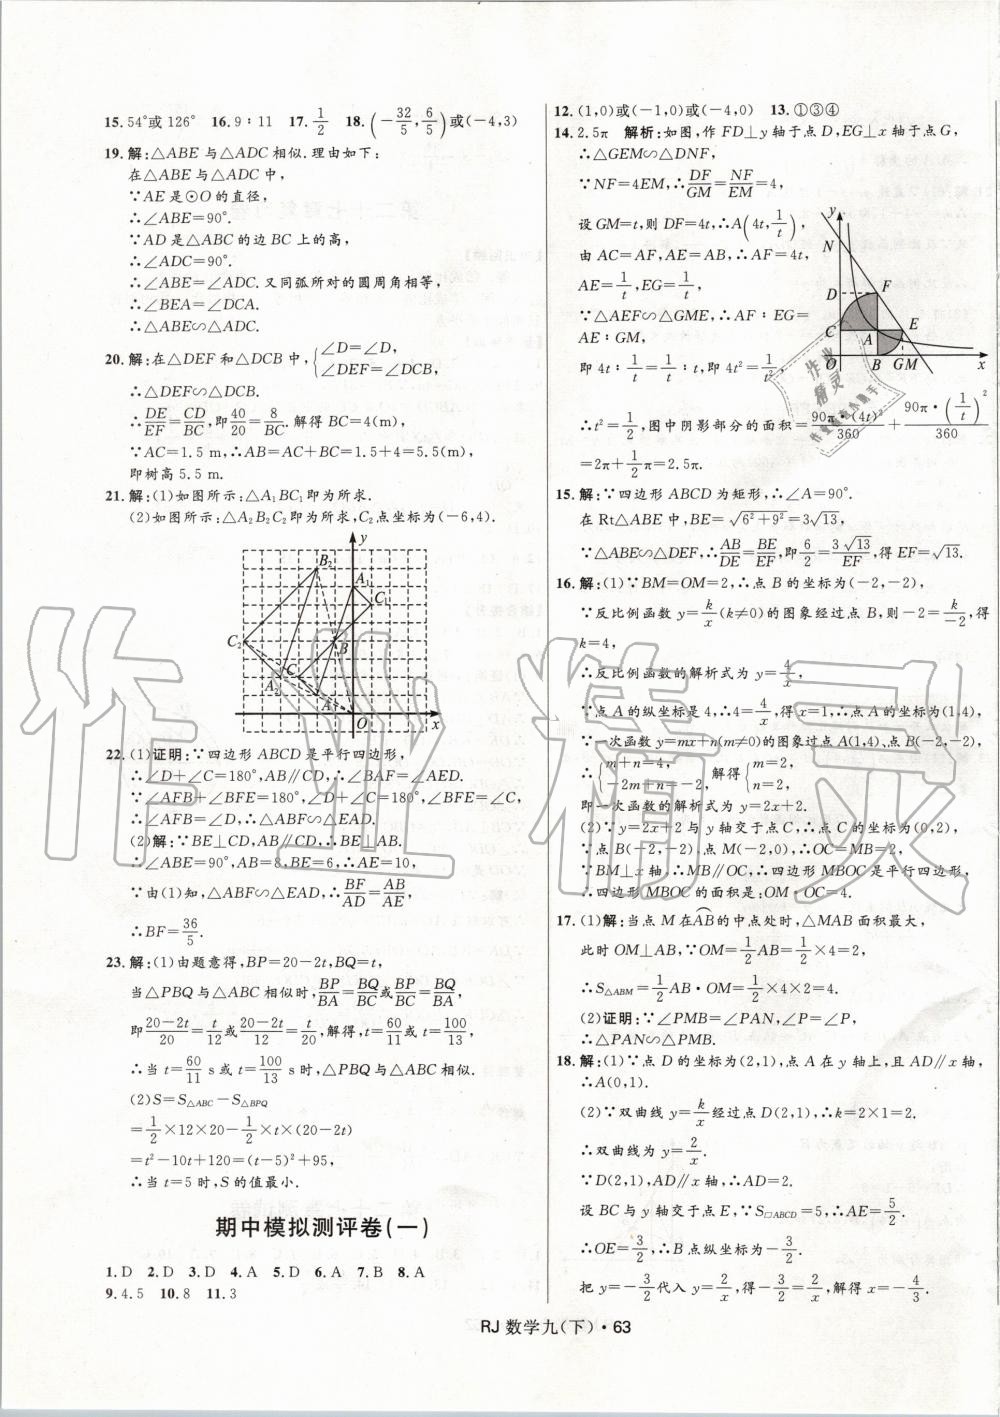 15. 54°或126°  16. 9∶11  17. 1/2  18. (-32/5, 6/5)或(-4,3)
19. 解:△ABE与△ADC相似.理由如下:
在△ABE与△ADC中,
∵AE是⊙O的直径,
∴∠ABE=90°.
∵AD是△ABC的边BC上的高,
∴∠ADC=90°.
∴∠ABE=∠ADC.又同弧所对的圆周角相等,
∴∠BEA=∠DCA.
∴△ABE∽△ADC.
20. 解:在△DEF和△DCB中,{∠D=∠D, ∠DEF=∠DCB,
∴△DEF∽△DCB.
∴DE/EF=CD/BC,即40/20=8/BC.解得BC=4(m),
∵AC=1.5 m,∴AB=AC+BC=1.5+4=5.5(m).
即树高5.5 m.
21. 解:(1)如图所示:△A₁BC₁即为所求.
(2)如图所示:△A₂B₂C₂即为所求,C₂点坐标为(-6,4).
y
B₂
A₁
C₁
C₂
B
C
A₂
A
O
x
22. (1)证明:∵四边形ABCD是平行四边形,
∴∠D+∠C=180°,AB∥CD,∴∠BAF=∠AED.
∵∠AFB+∠BFE=180°,∠D+∠C=180°,∠BFE=∠C,
∴∠AFB=∠D,∴△ABF∽△EAD.
(2)解:∵BE⊥CD,AB∥CD,∴BE⊥AB.
∴∠ABE=90°,AB=8,BE=6,∴AE=10,
∵由(1)知,△ABF∽△EAD,∴BF/AD=AB/AE,
∴BF=36/5.
23. 解:(1)由题意得,BP=20-2t,BQ=t,
当△PBQ与△ABC相似时,BP/BA=BQ/BC或BP/BC=BQ/BA,
即(20-2t)/20=t/12或(20-2t)/12=t/20,解得,t=60/11或t=100/13,
∴当t=60/11 s或t=100/13 s时,△PBQ与△ABC相似.
(2)S=S△ABC-S△BPQ
=1/2×12×20-1/2×t×(20-2t)
=t²-10t+120=(t-5)²+95,
∴当t=5时,S的值最小.
期中模拟测评卷(一)
1. D  2. D  3. D  4. A  5. D  6. A  7. B  8. A
9. 4.5  10. 8  11. 3
12. (1,0)或(-1,0)或(-4,0)  13. ①③④
14. 2.5π  解析:如图,作FD⊥y轴于点D,EG⊥x轴于点G,
∴△GEM∽△DNF,
∵NF=4EM,∴DF/GM=NF/EM=4,
设GM=t,则DF=4t,∴A(4t, 1/t),
由AC=AF,AE=AB,∴AF=4t,
AE=1/t,EG=1/t,
∵△AEF∽△GME,∴AF∶EG=
AE∶GM,
即4t∶1/t=1/t∶t,即4t²=1/t²,
y
N
D
F
C
E
A
O
B
G
M
x
∴t²=1/2,图中阴影部分的面积=90π·(4t)²/360+90π·(1/t)²/360
=2π+1/2π=2.5π.
15. 解:∵四边形ABCD为矩形,∴∠A=90°.
在Rt△ABE中,BE=√(6²+9²)=3√13,
∵△ABE∽△DEF,∴AB/DE=BE/EF,即6/2=3√13/EF,得EF=√13.
16. 解:(1)∵BM=OM=2,∴点B的坐标为(-2,-2),
∵反比例函数y=k/x(k≠0)的图象经过点B,则-2=k/-2,得
k=4,
∴反比例函数的解析式为y=4/x,
∵点A的纵坐标是4,∴4=4/x,得x=1,∴点A的坐标为(1,4),
∵一次函数y=mx+n(m≠0)的图象过点A(1,4)、点B(-2,-2),
∴{m+n=4, -2m+n=-2, 解得{m=2, n=2,
即一次函数的解析式为y=2x+2.
(2)∵y=2x+2与y轴交于点C,∴点C的坐标为(0,2),
∵点B(-2,-2),点M(-2,0),∴OC=MB=2,
∵BM⊥x轴,∴MB∥OC,∴四边形MBOC是平行四边形,
∴四边形MBOC的面积是:OM·OC=4.
17. (1)解:当点M在AB的中点处时,△MAB面积最大,
此时OM⊥AB,∵OM=1/2AB=1/2×4=2,
∴S△ABM=1/2AB·OM=1/2×4×2=4.
(2)证明:∵∠PMB=∠PAN,∠P=∠P,
∴△PAN∽△PMB.
18. 解:(1)∵点D的坐标为(2,1),点A在y轴上,且AD∥x轴,
∴A(0,1).
(2)∵双曲线y=k/x经过点D(2,1),∴k=2×1=2.
∴双曲线为y=2/x.
∵D(2,1),AD∥x轴,∴AD=2.
设BC与y轴交于点E,∵S▱ABCD=5,∴AE=5/2.
∴OE=3/2,∴B点纵坐标为-3/2.
把y=-3/2代入y=2/x得-3/2=2/x,解得x=-4/3.
RJ 数学九(下)·63
作业精灵